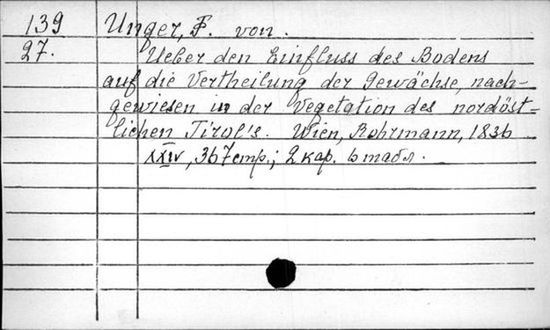 139 Unger, F. von.
27. Ueber den Einfluss des Bodens
auf die Vertheilung der Gewächse, nach-
gewiesen in der Vegetation des nordöst-
lichen Tirol's. Wien, Rohrmann, 1836
XXIV, 367 стр.; 2 кар. 6 табл.